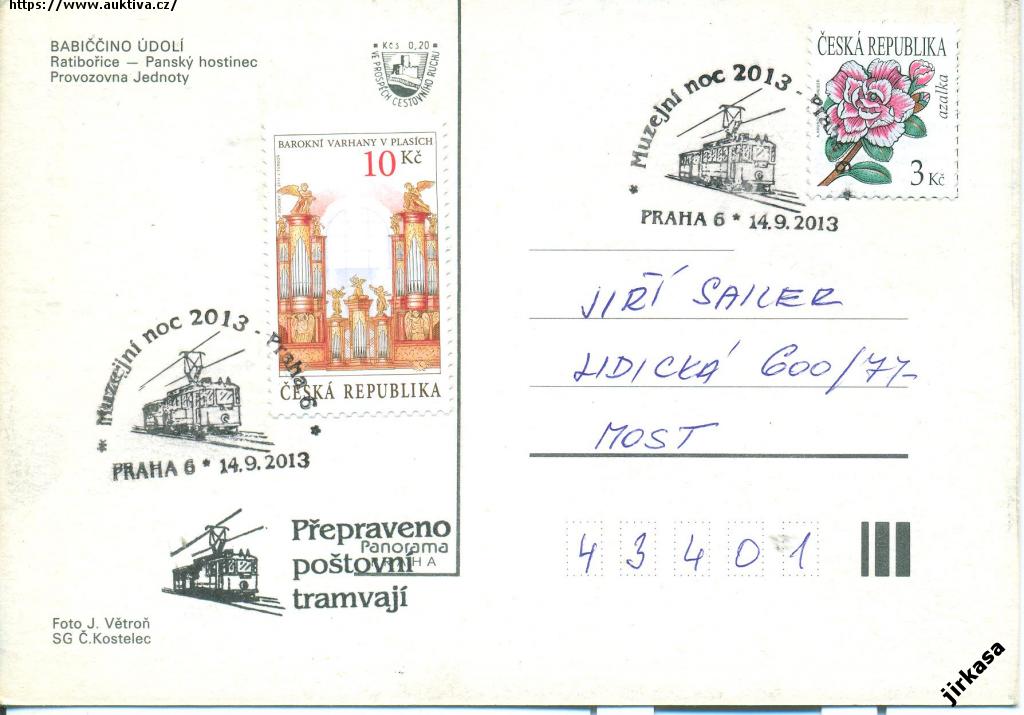 https://www.auktiva.cz/
BABIČČINO ÚDOLÍ
Ratibořice — Panský hostinec
Provozovna Jednoty
Kčs 0,20
VE PROSPĚCH CESTOVNÍHO RUCHU
BAROKNÍ VARHANY V PLASÍCH
10 Kč
ČESKÁ REPUBLIKA
Muzejní noc 2013 - Praha 6
PRAHA 6 * 14.9.2013
ČESKÁ REPUBLIKA
azalka
3 Kč
* Muzejní noc 2013 - Praha 6 *
PRAHA 6 * 14.9.2013
JIŘÍ SAILER
LIDICKÁ 600/77
MOST
43401
Přepraveno
poštovní
tramvají
Panorama
PRAHA
Foto J. Větroň
SG Č.Kostelec
jirkasa